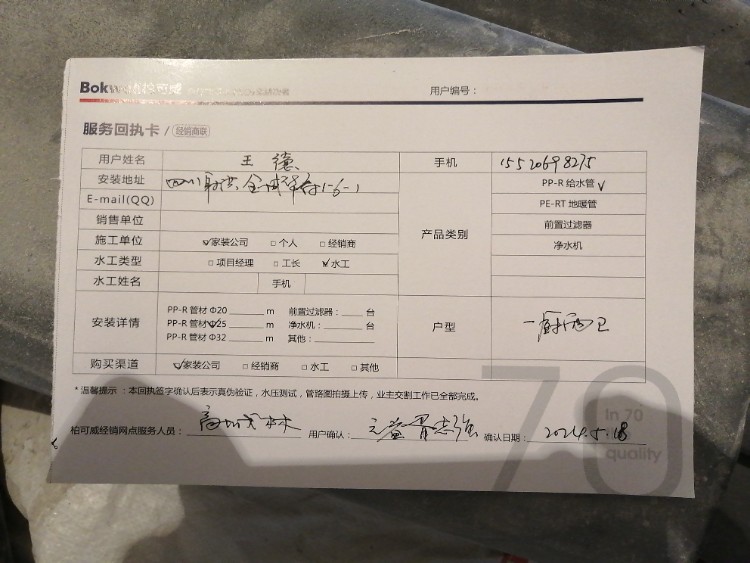 Bokw
用户编号：
服务回执卡 / 经销商联
用户姓名 王德 手机 15520698275
安装地址 四川射洪金城华府1-6-1 产品类别 PP-R 给水管 √
E-mail(QQ) PE-RT 地暖管
销售单位 前置过滤器
施工单位 √家装公司 □个人 □经销商 净水机
水工类型 □项目经理 □工长 √水工
水工姓名 手机
安装详情 PP-R 管材 Φ20 ______ m 前置过滤器：____ 台 户型 一厨两卫
PP-R 管材 √Φ25 ______ m 净水机：____ 台
PP-R 管材 Φ32 ______ m 其他：______
购买渠道 √家装公司 □经销商 □水工 □其他
* 温馨提示：本回执签字确认后表示真伪验证，水压测试，管路图拍摄上传，业主交割工作已全部完成。
柏可威经销网点服务人员： 用户确认： 确认日期：2024.5.18
70
In 70
quality